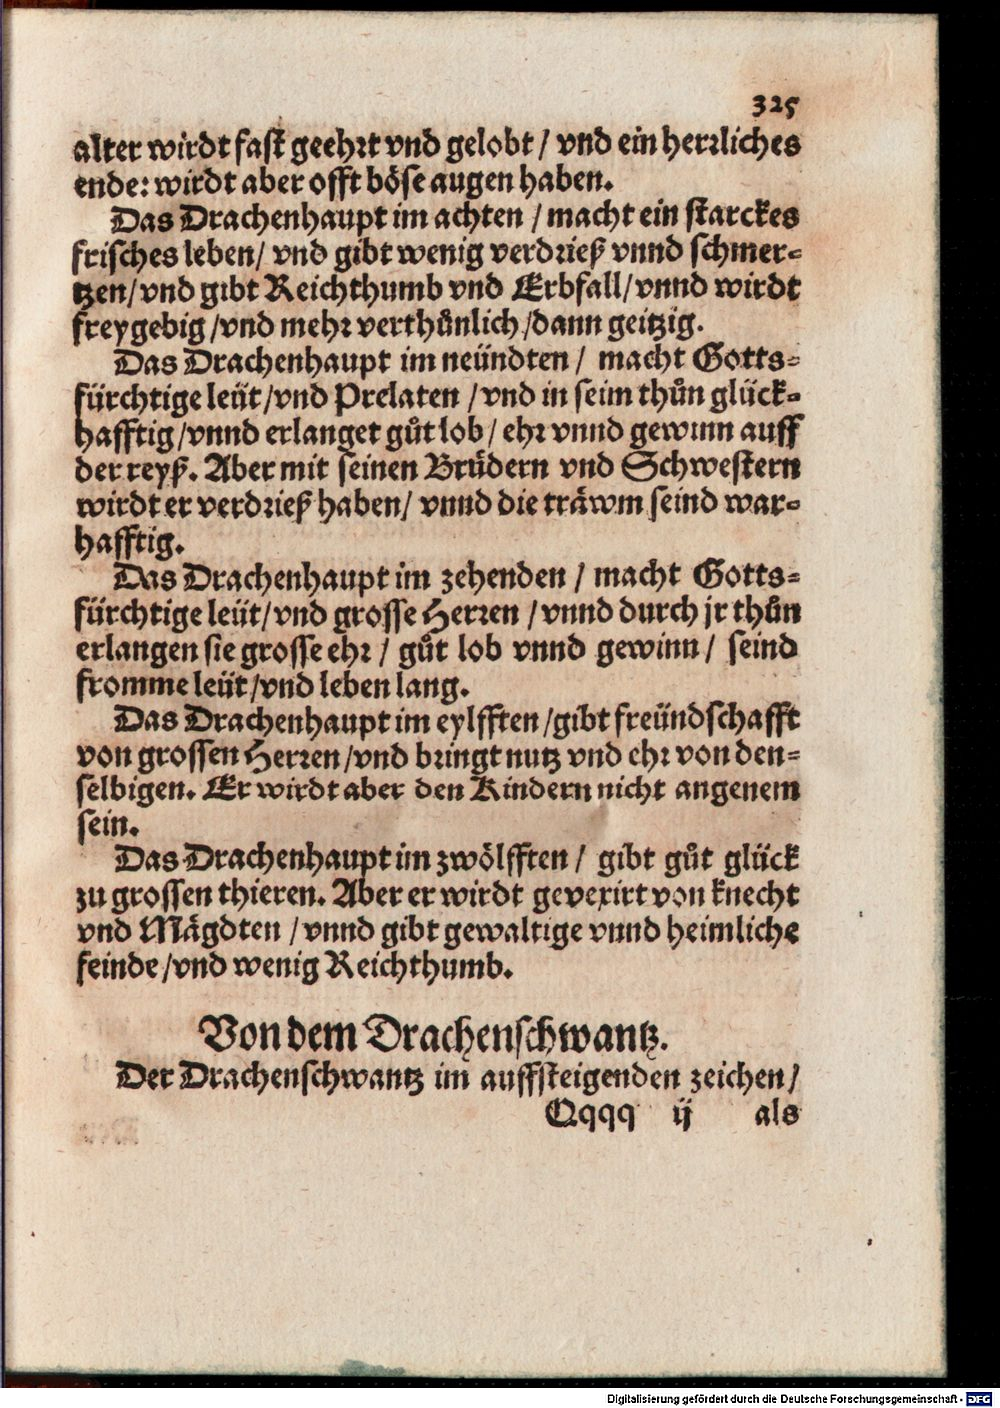 325
alter wirdt fast geehrt vnd gelobt / vnd ein herrliches
ende: wirdt aber offt böse augen haben.
Das Drachenhaupt im achten / macht ein starckes
frisches leben / vnd gibt wenig verdrieß vnnd schmer-
tzen / vnd gibt Reichthumb vnd Erbfall / vnnd wirdt
freygebig / vnd mehr verthůnlich / dann geitzig.
Das Drachenhaupt im neündten / macht Gotts-
fürchtige leüt / vnd Prelaten / vnd in seim thůn glück-
hafftig / vnnd erlanget gůt lob / ehr vnnd gewinn auff
der reyß. Aber mit seinen Brüdern vnd Schwestern
wirdt er verdrieß haben / vnnd die träwm seind war-
hafftig.
Das Drachenhaupt im zehenden / macht Gotts-
fürchtige leüt / vnd grosse Herren / vnnd durch jr thůn
erlangen sie grosse ehr / gůt lob vnnd gewinn / seind
fromme leüt / vnd leben lang.
Das Drachenhaupt im eylfften / gibt freündschafft
von grossen Herren / vnd bringt nutz vnd ehr von den-
selbigen. Er wirdt aber den Kindern nicht angenem
sein.
Das Drachenhaupt im zwölfften / gibt gůt glück
zu grossen thieren. Aber er wirdt gevexirt von knecht
vnd Mägdten / vnnd gibt gewaltige vnnd heimliche
feinde / vnd wenig Reichthumb.
Von dem Drachenschwantz.
Der Drachenschwantz im auffsteigenden zeichen /
Qqqq ij als
Digitalisierung gefördert durch die Deutsche Forschungsgemeinschaft - DFG